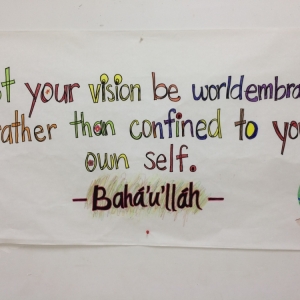 t your vision be worldembra
rather than confined to yo
own self.
- Bahá'u'lláh -